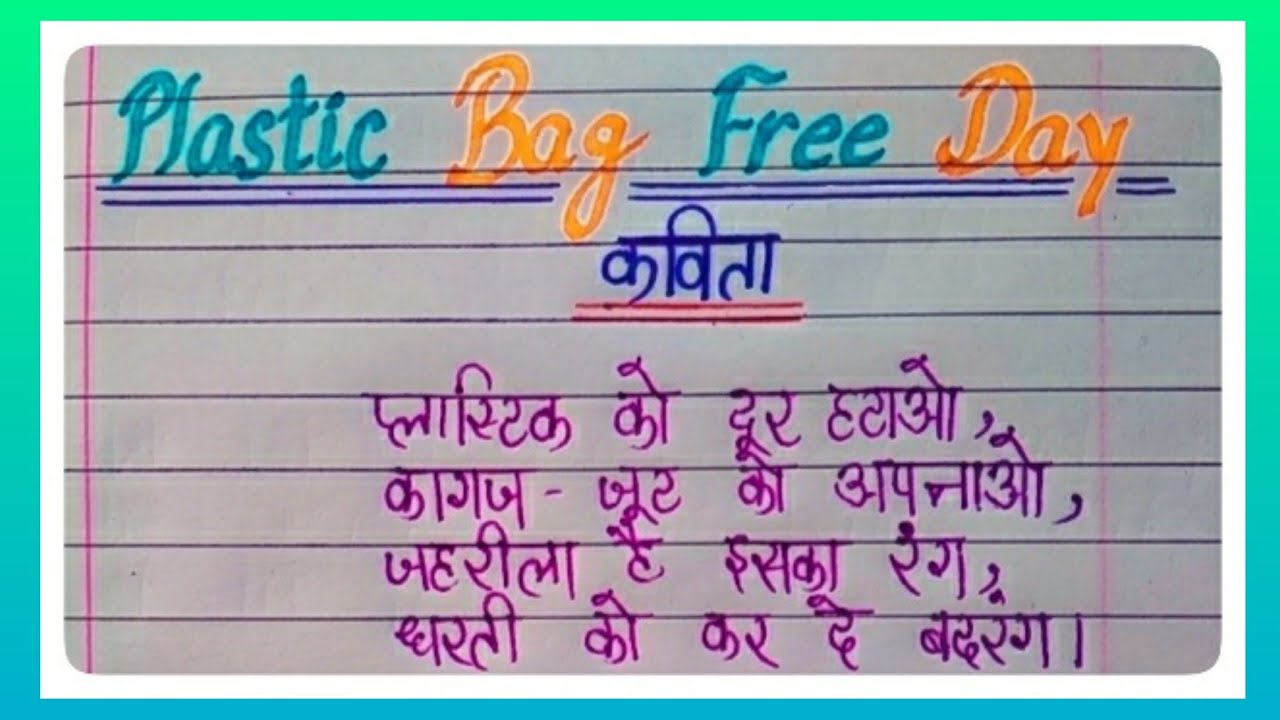 Plastic Bag Free Day
कविता
प्लास्टिक को दूर हटाओ,
कागज - जूट को अपनाओ,
जहरीला है इसका रंग,
धरती को कर दे बदरंग।